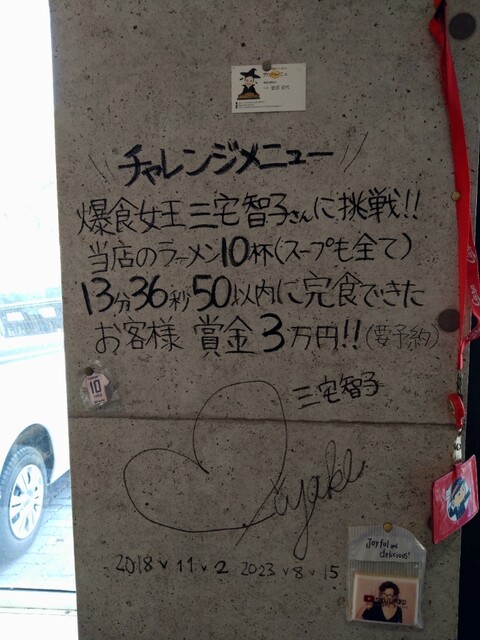 チャレンジメニュー
爆食女王 三宅智子さんに挑戦!!
当店のラーメン10杯(スープも全て)
13分36秒50以内に完食できた
お客様 賞金3万円!!(要予約)
三宅智子
Miyake
2018 v 11 v 2 2023 v 8 v 15
10
Joyful and
delicious!